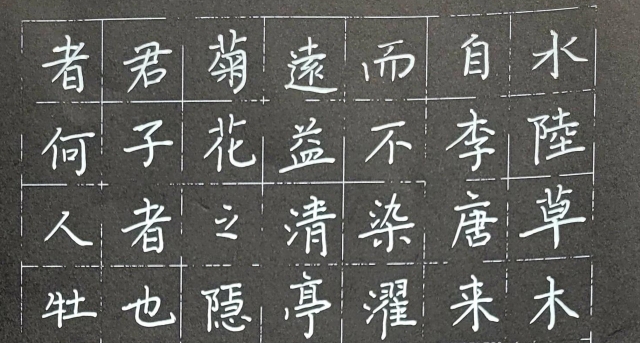 水陸草木
自李唐来
而不染濯
遠益清亭
菊花之隠
君子者也
者何人牡